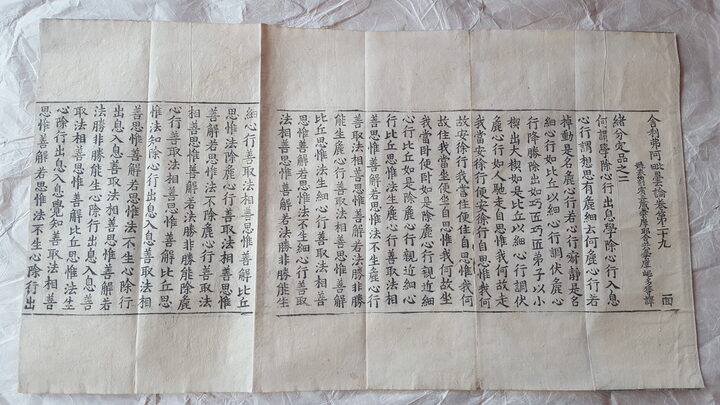 舍利弗阿毗曇論卷第二十九 一面
姚秦罽賓三藏曇摩耶舍共曇摩崛多等譯
緒分定品之二
何謂學除心行出息學除心行入息
心行謂想思有麁細云何麁心行若
掉動是名麁心行若心行寂靜是名
細心行如比丘以細心行調伏麁心
行降勝除出如巧匠巧匠弟子以小
楔出大楔如是比丘以細心行調伏
麁心行如人馳走自思惟我何故走
我當安徐行便安徐行自思惟我何
故安徐行我當住便住自思惟我何
故住我當坐便坐自思惟我何故坐
我當卧便卧如是除麁心行親近細
心行比丘如是除麁心行親近細心
行比丘思惟法生麁心行善取法相
善思惟善解若思惟法不生麁心行
善取法相善思惟善解若法勝非勝
能生麁心行善取法相善思惟善解
比丘思惟法生細心行善取法相善
思惟善解若思惟法不生細心行善取
法相善思惟善解若法勝非勝能生
細心行善取法相善思惟善解比丘
思惟法除麁心行善取法相善思惟
善解若思惟法不除麁心行善取法
相善思惟善解若法勝非勝能除麁
心行善取法相善思惟善解比丘思
惟法知除心行出息入息善取法相
善思惟善解若思惟法不生心除行
出息入息善取法相善思惟善解若
法勝非勝能生心除行出息入息善
取法相善思惟善解比丘思惟法生
心除行出息入息覺知善取法相善
思惟善解若思惟法不生心除行出